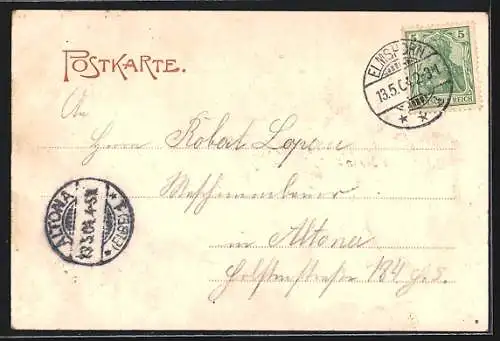 POSTKARTE.
ELMSHORN
13.5.04. 2-3N.
5
REICH
An
Herrn Robert Lopau
Maschinenbauer
in Altona
Holstenstraße 134
ALTONA
13.5.04. 4-5N.
(ELBE)